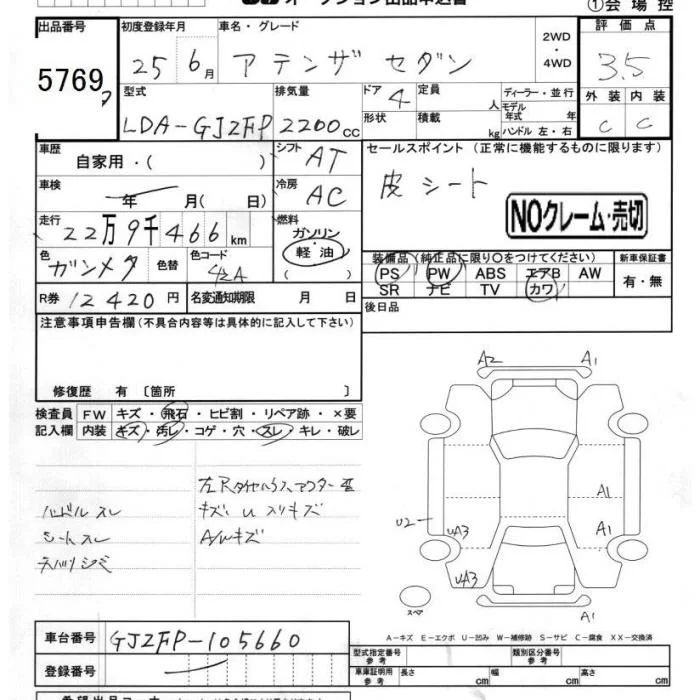 オークション出品申込書
①会場控
出品番号 初度登録年月 車名・グレード 2WD・4WD 評価点
5769 25 6月 アテンザ セダン 3.5
型式 排気量 ドア 4 定員 人 ディーラー・並行 外装 内装
LDA-GJ2FP 2200cc 形状 積載 kg モデル年式 年 ハンドル 左・右 C C
車歴 自家用・( ) シフト AT セールスポイント(正常に機能するものに限ります)
皮シート
車検 年 月( 日) 冷房 AC
NOクレーム・売切
走行 22万9千466km 燃料 ガソリン・軽油 ( )
装備品(純正品に限り○をつけてください) 新車保証書
色 ガンメタ 色替 色コード 42A
PS PW ABS エアB AW 有・無
SR ナビ TV カワ
R券 12420円 名変通知期限 月 日 後日品
注意事項申告欄(不具合内容等は具体的に記入して下さい)
修復歴 有〔箇所 〕
検査員 FW キズ・飛石・ヒビ割・リペア跡・×要
記入欄 内装 キズ・汚レ・コゲ・穴・スレ・キレ・破レ
A2 A1
ハンドルスレ キズ U スリキズ A1
シートスレ A/Wキズ U2 UA3 A1
天バリシミ
UA3
スペア A1
A-キズ E-エクボ U-凹み W-補修跡 S-サビ C-腐食 XX-交換済
車台番号 GJ2FP-105660
型式指定番号 参考 類別区分番号 参考
登録番号
車庫証明用 参考 長さ cm 幅 cm 高さ cm
希望出品コーナー